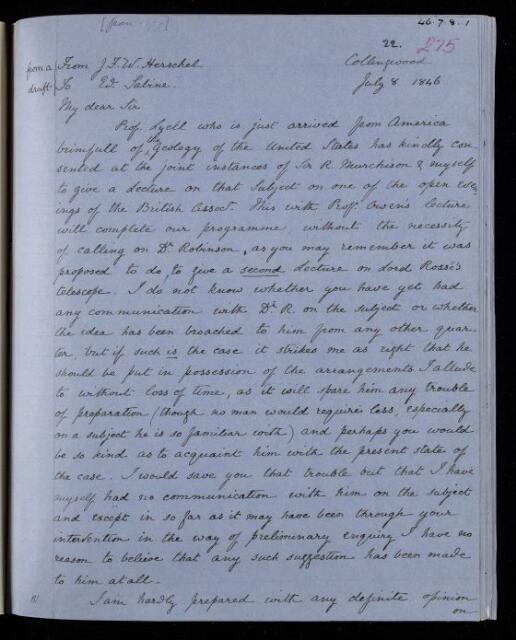 46.7.8.1
22. 275
from a
draft.
From J.F.W. Herschel Collingwood
To Ed. Sabine. July 8 1846
My dear Sir
Prof. Lyell who is just arrived from America
brimfull of the Geology of the United States has kindly con-
sented at the joint instances of Sir R. Murchison & myself
to give a Lecture on that Subject on one of the open eve-
ings of the British Assocn. This with Prof. Owen's lecture
will complete our programme without the necessity
of calling on Dr Robinson, as you may remember it was
proposed to do, to give a second Lecture on Lord Rosse's
telescope. I do not know whether you have yet had
any communication with Dr R. on the subject or whether
the idea has been broached to him from any other quar-
ter, but if such is the case it strikes me as right that he
should be put in possession of the arrangements I allude
to without loss of time, as it will spare him any trouble
of preparation (though no man would require less, especially
on a subject he is so familiar with) and perhaps you would
be so kind as to acquaint him with the present state of
the case. I would save you that trouble but that I have
myself had no communication with him on the subject
and except in so far as it may have been through your
intervention in the way of preliminary enquiry I have no
reason to believe that any such suggestion has been made
to him at all.
I am hardly prepared with any definite opinion
on